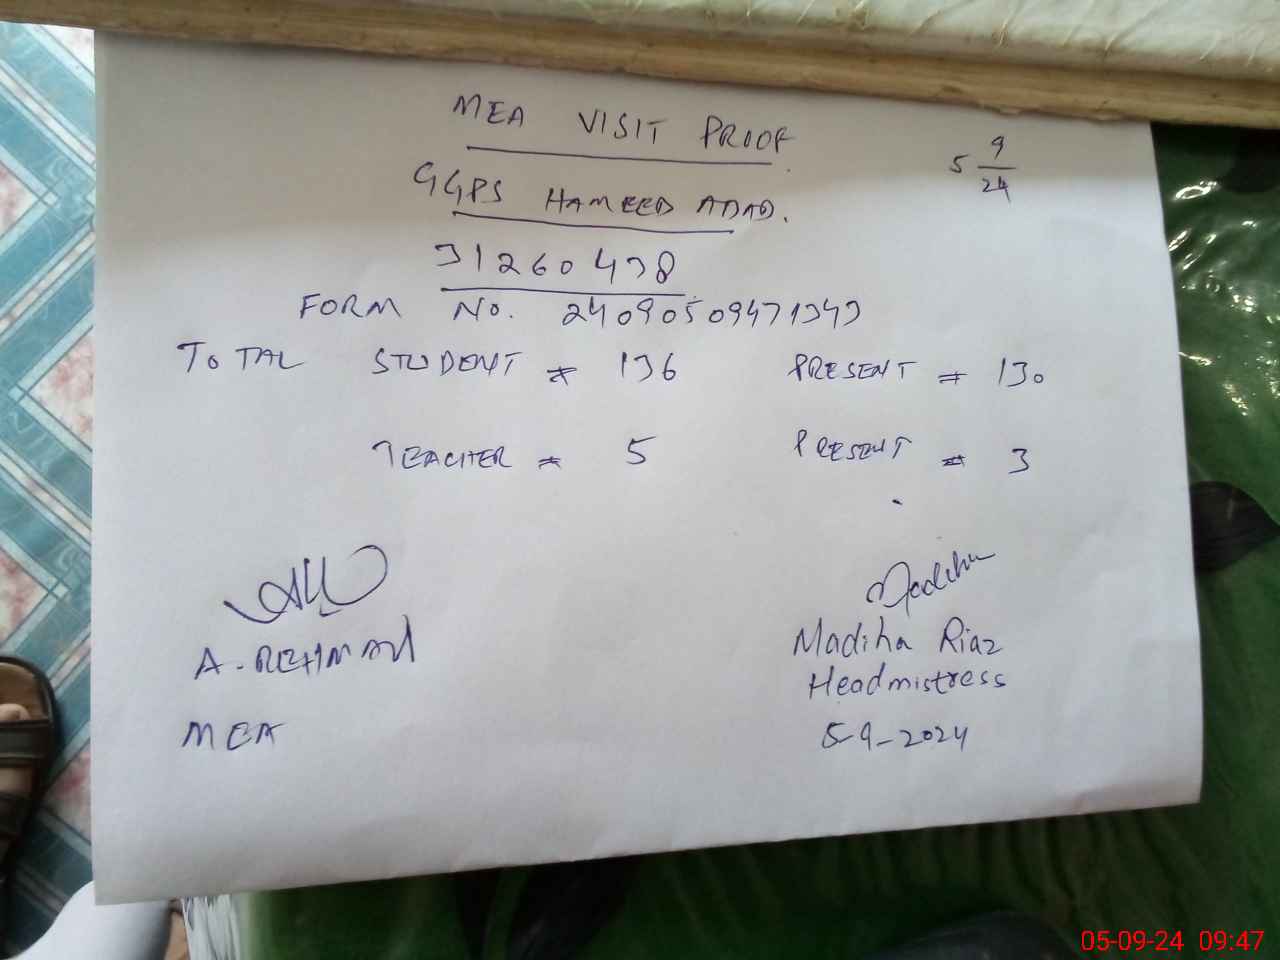 MEA VISIT PROOF.
5 9/24
GGPS HAMEED ABAD.
31260438
FORM No. 24090509471343
TOTAL STUDENT = 136 PRESENT = 130
TEACHER = 5 PRESENT = 3
Madiha
A. REHMAN
Madiha Riaz
Headmistress
MEA
5-9-2024
05-09-24 09:47